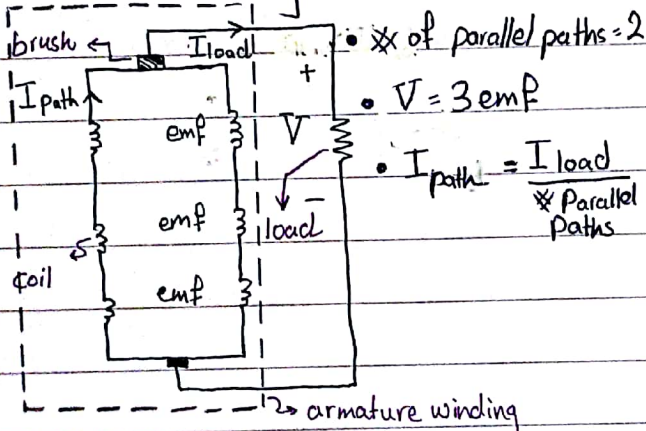 brush
I load
I path
emf
V
+
-
load
emf
coil
emf
armature winding
• # of parallel paths = 2
• V = 3 emf
• I path = I load / # Parallel Paths